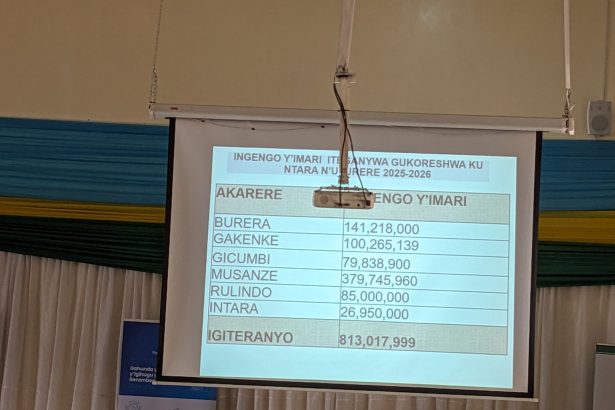 INGENGO Y'IMARI ITEGANYWA GUKORESHWA KU
NTARA N'UTURERE 2025-2026
AKARERE ENGO Y'IMARI
BURERA 141,218,000
GAKENKE 100,265,139
GICUMBI 79,838,900
MUSANZE 379,745,960
RULINDO 85,000,000
INTARA 26,950,000
IGITERANYO 813,017,999
Gahunda
y'Igihugu